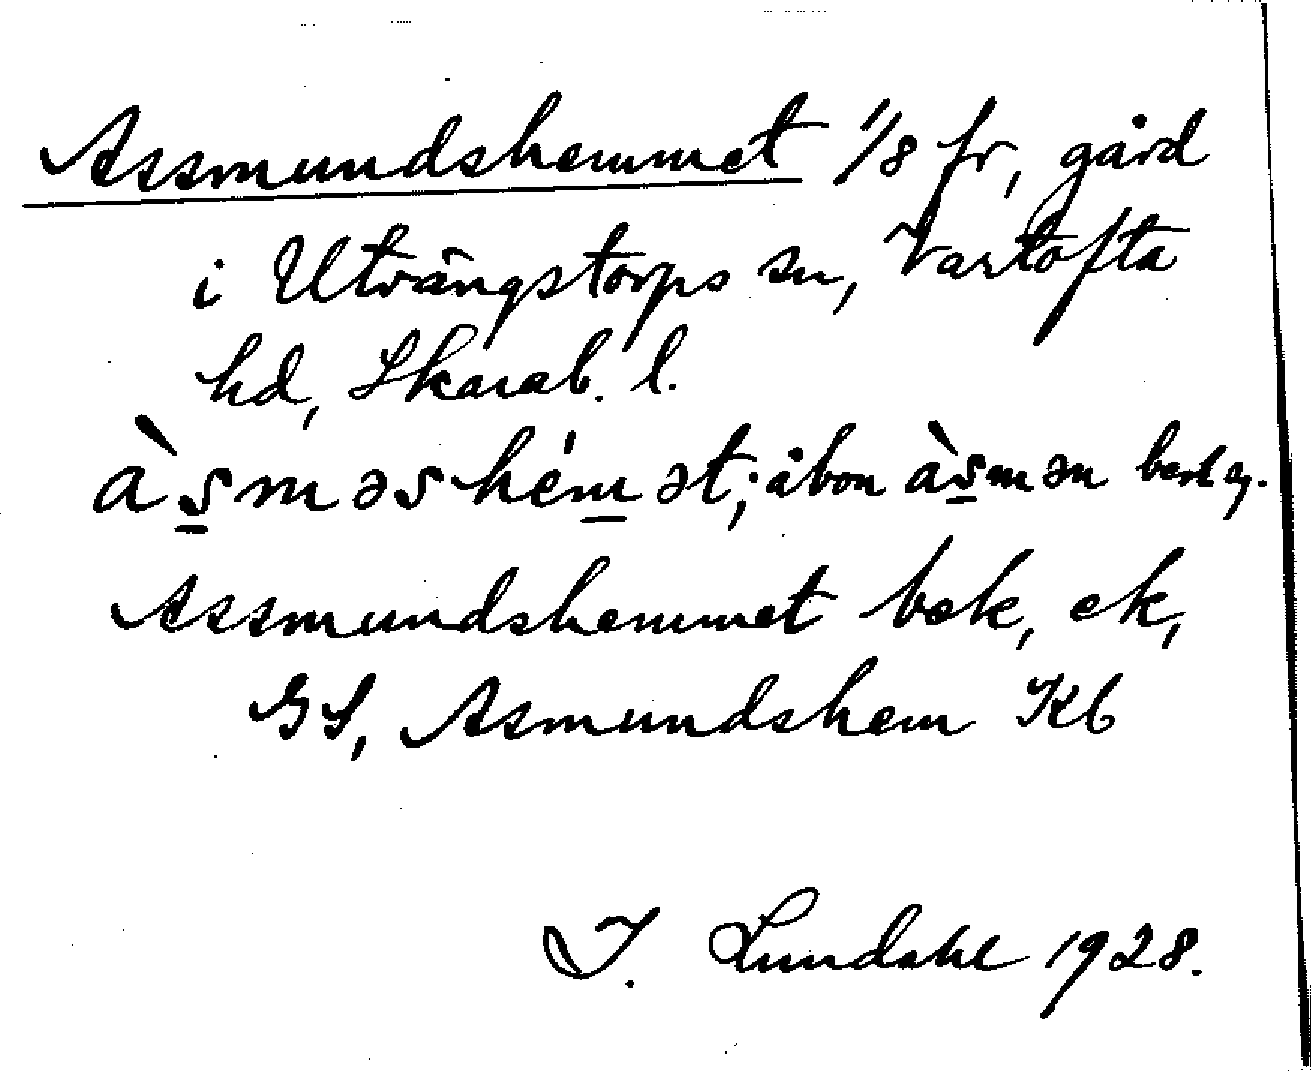 Assmundshemmet 1/8 fr, gård
i Utvängstorps sn, Vartofta
hd, Skarab. l.
às̱məshém̱ət; åbon às̱mən
Assmundshemmet bok, ek,
GS, Asmundshem Kb
I. Lundahl 1928.